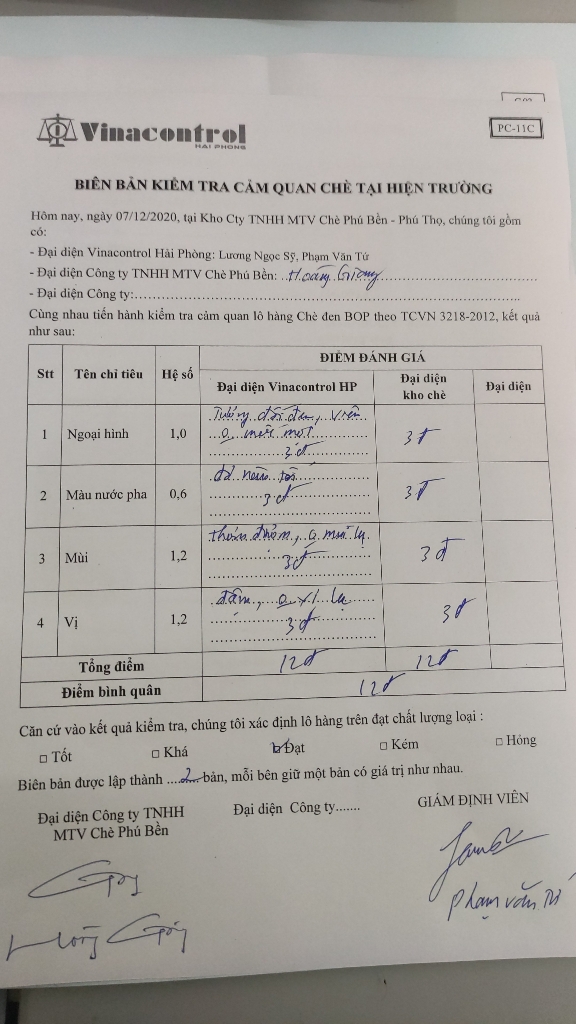 Vinacontrol
HAI PHONG
PC-11C
BIÊN BẢN KIỂM TRA CẢM QUAN CHÈ TẠI HIỆN TRƯỜNG
Hôm nay, ngày 07/12/2020, tại Kho Cty TNHH MTV Chè Phú Bền - Phú Thọ, chúng tôi gồm
có:
- Đại diện Vinacontrol Hải Phòng: Lương Ngọc Sỹ, Phạm Văn Tứ
- Đại diện Công ty TNHH MTV Chè Phú Bền: Hoàng Giang
- Đại diện Công ty:
Cùng nhau tiến hành kiểm tra cảm quan lô hàng Chè đen BOP theo TCVN 3218-2012, kết quả
như sau:
Stt Tên chỉ tiêu Hệ số ĐIỂM ĐÁNH GIÁ
Đại diện Vinacontrol HP Đại diện kho chè Đại diện
1 Ngoại hình 1,0 Tương đối đen, 3đ 3đ
2 Màu nước pha 0,6 3đ 3đ
3 Mùi 1,2 3đ 3đ
4 Vị 1,2 3đ 3đ
Tổng điểm 12đ 12đ
Điểm bình quân 12đ
Căn cứ vào kết quả kiểm tra, chúng tôi xác định lô hàng trên đạt chất lượng loại :
□ Tốt □ Khá □ Đạt □ Kém □ Hỏng
Biên bản được lập thành ....2.... bản, mỗi bên giữ một bản có giá trị như nhau.
Đại diện Công ty TNHH Đại diện Công ty....... GIÁM ĐỊNH VIÊN
MTV Chè Phú Bền
Phạm Văn Tứ